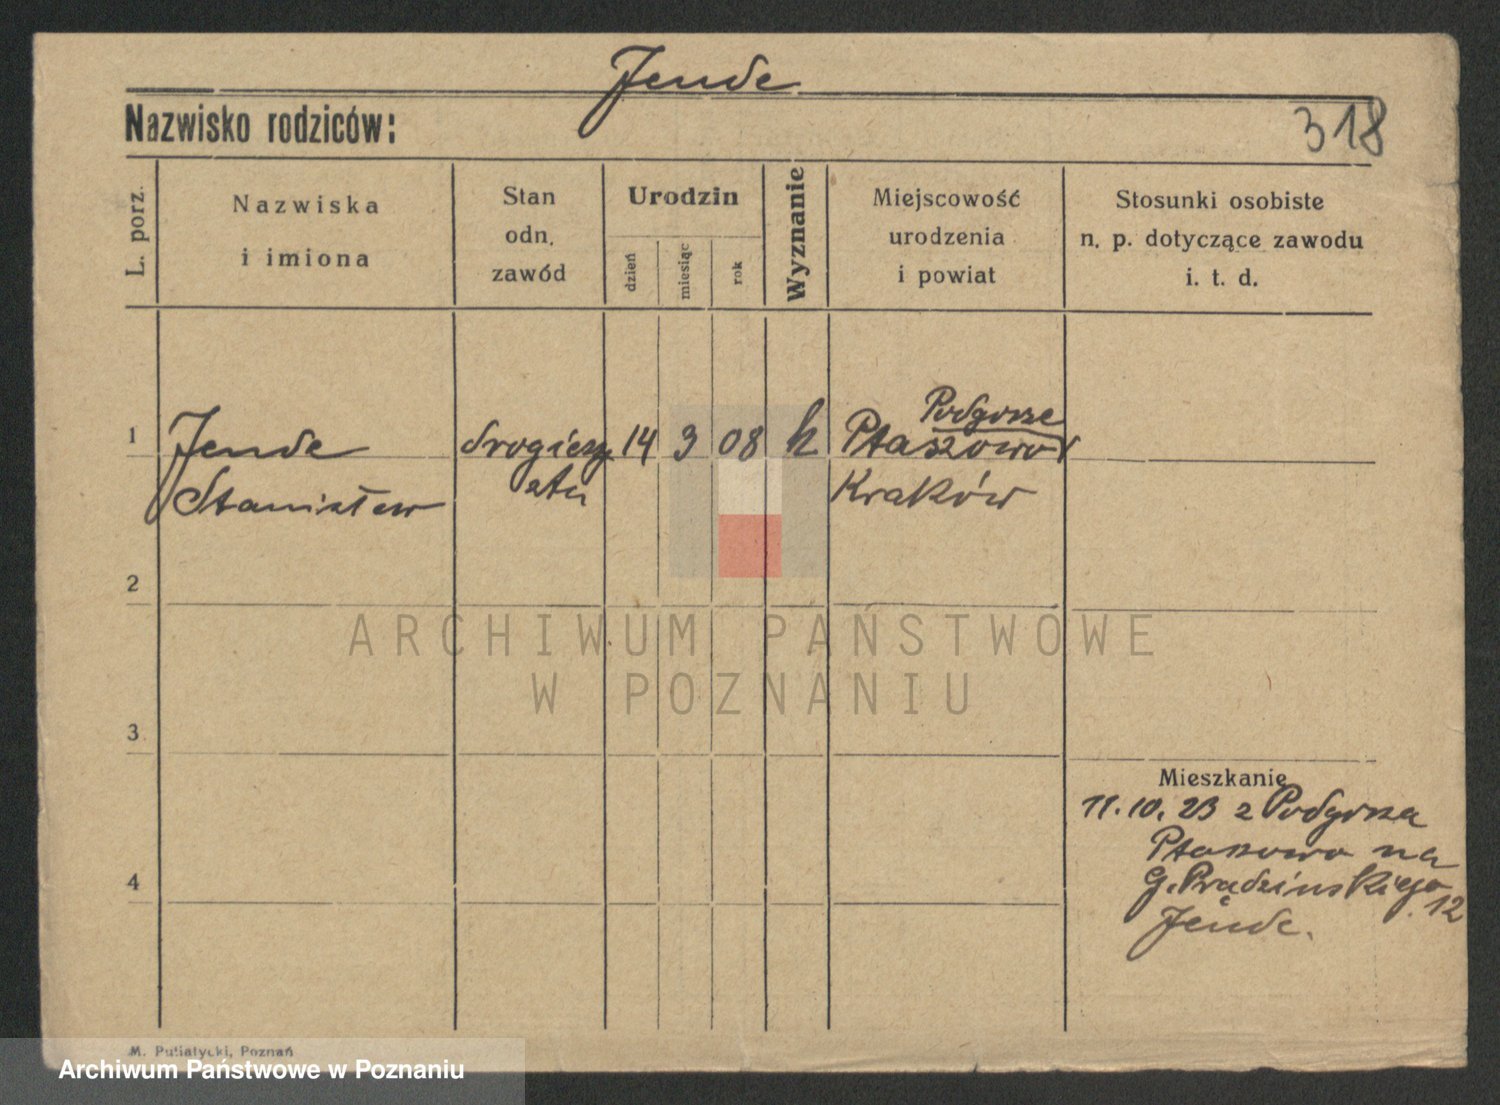 Jende
Nazwisko rodziców:
318
L. porz.
Nazwiska
i imiona
Stan
odn.
zawód
Urodzin
dzień
miesiąc
rok
Wyznanie
Miejscowość
urodzenia
i powiat
Stosunki osobiste
n. p. dotyczące zawodu
i. t. d.
1
Jende
Stanisław
14
3
08
k
Podgorze
Ptaszowo
Kraków
2
3
4
Mieszkanie
11.10.23 z Podgorza
Ptaszowo na
G. Prądzinskiego
12
Jende.
M. Putiatycki, Poznań
ARCHIWUM PAŃSTWOWE
W POZNANIU
Archiwum Państwowe w Poznaniu